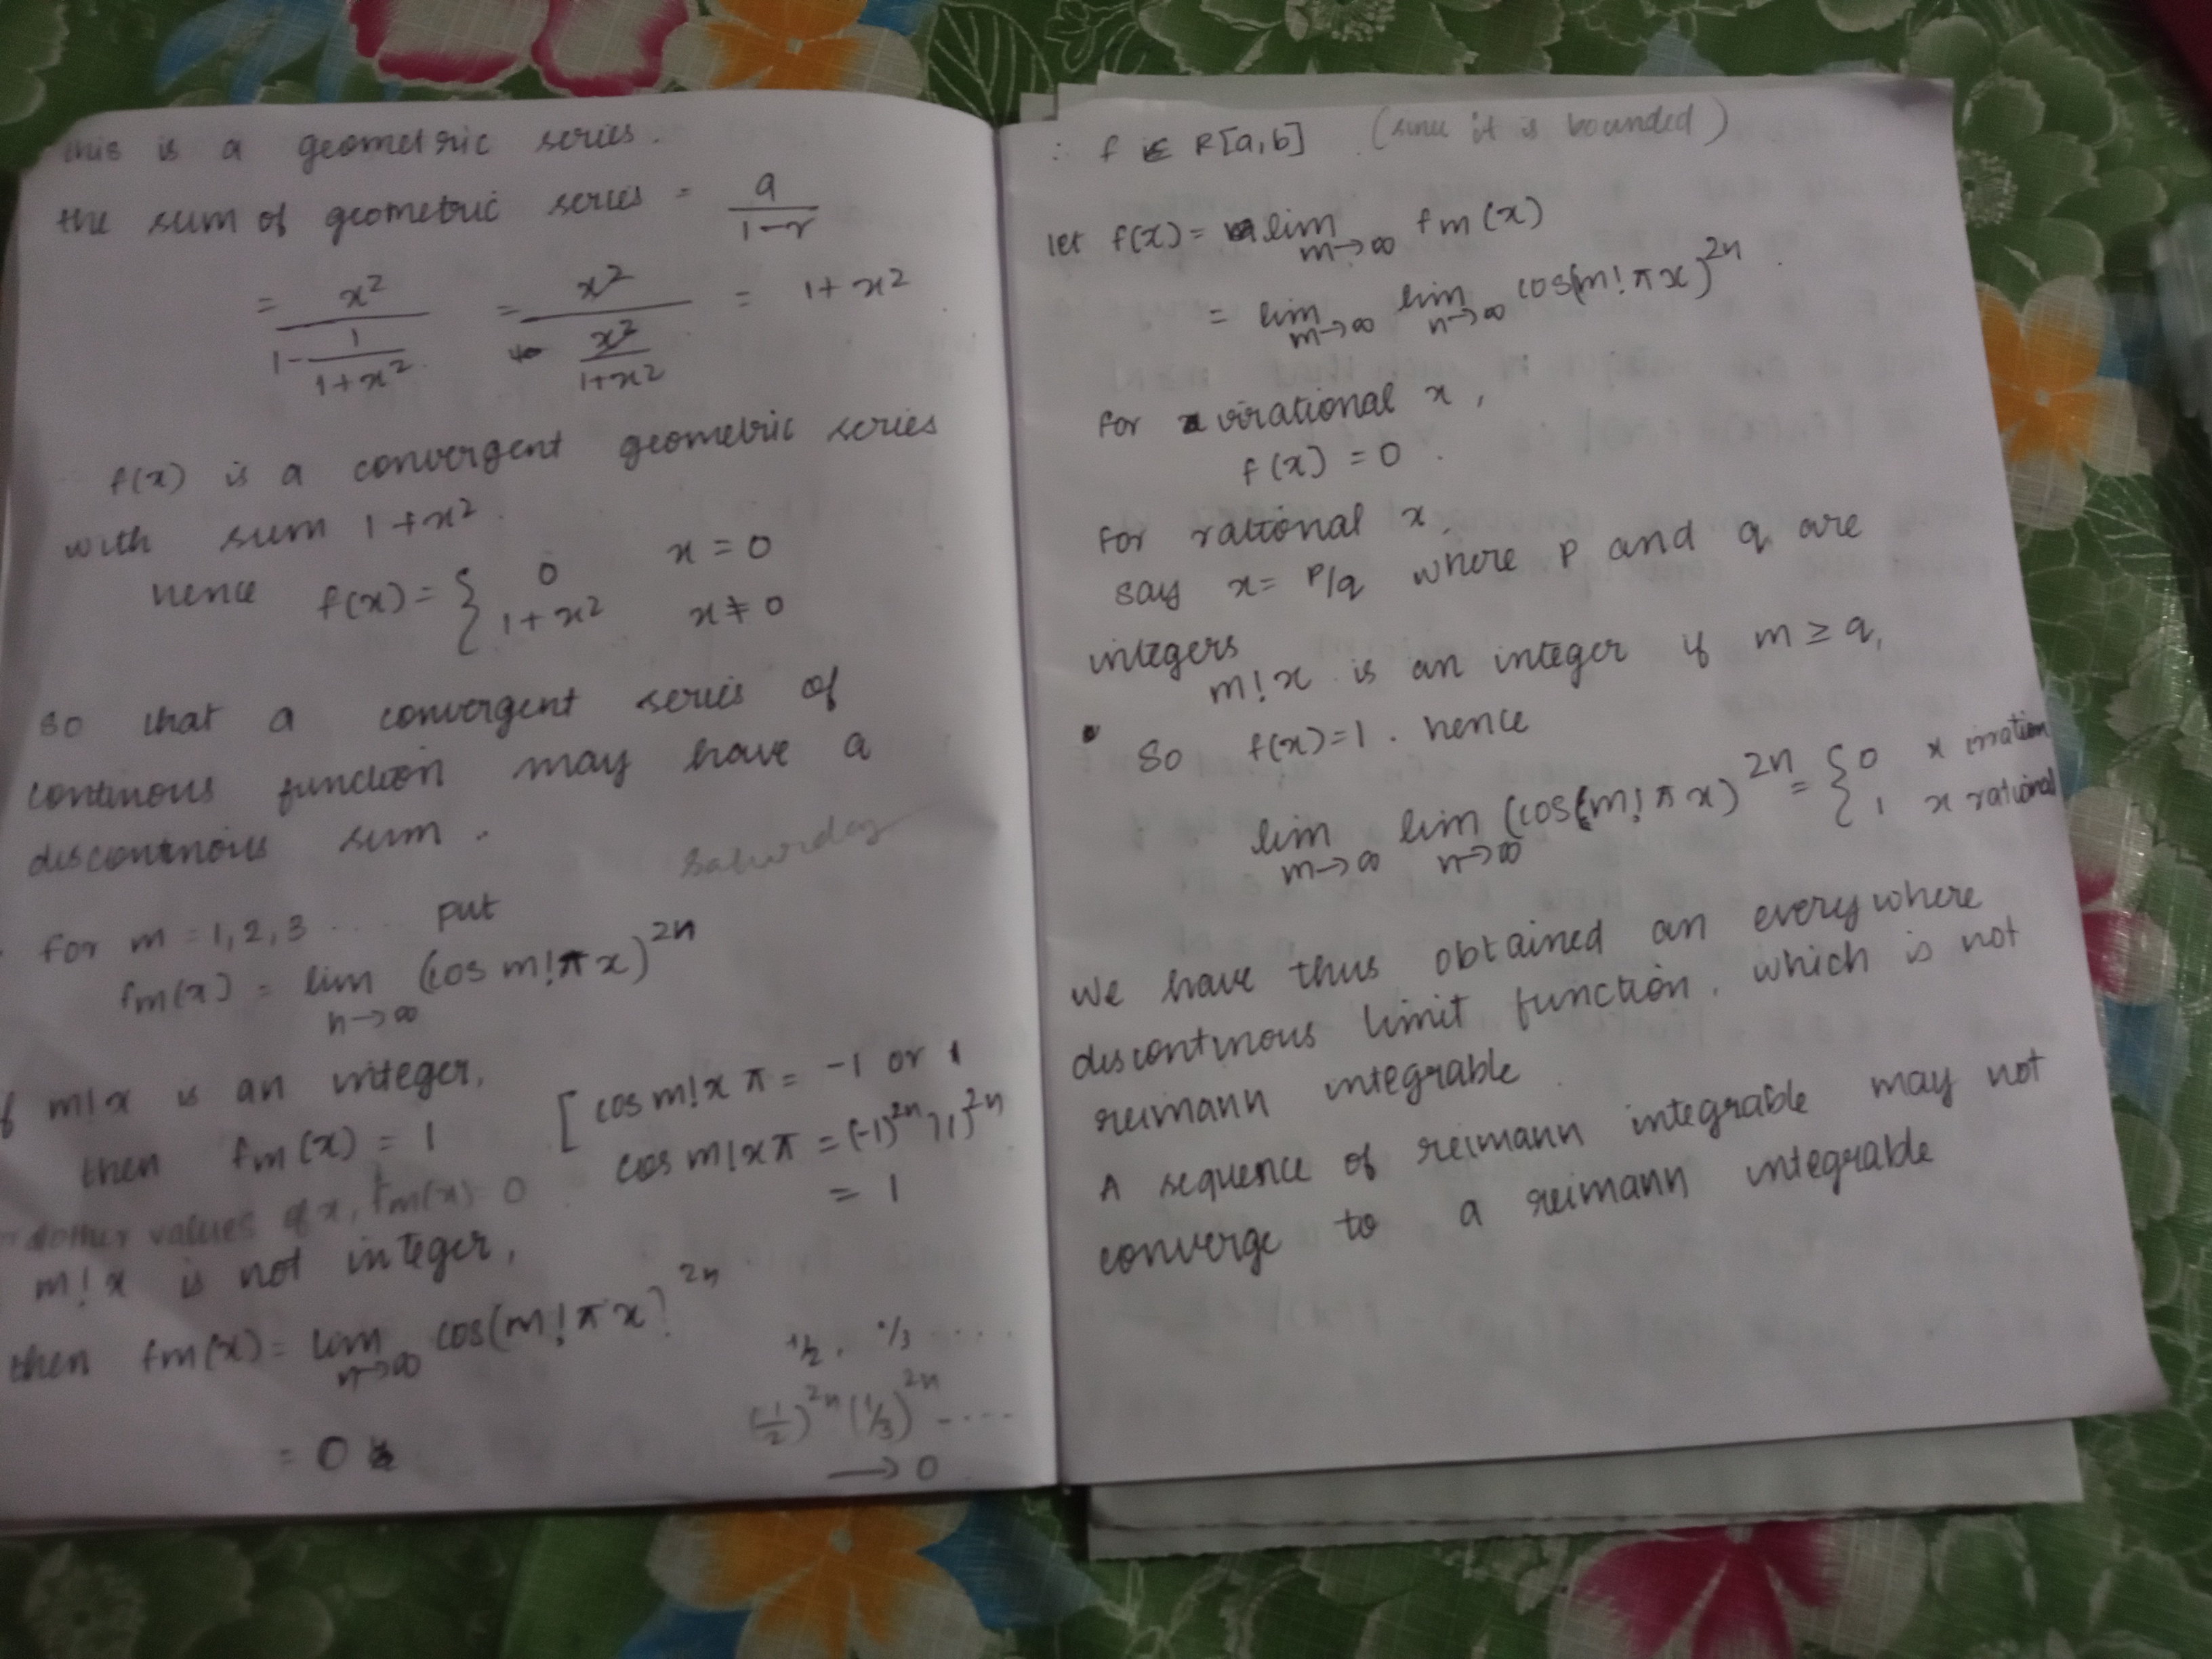 this is a geometric series.
the sum of geometric series = a/(1-r)
= x²/(1 - 1/(1+x²)) = x²/(x²/(1+x²)) = 1+x²
f(x) is a convergent geometric series
with sum 1+x².
hence f(x) = { 0 x = 0
1+x² x ≠ 0
so that a convergent series of
continous function may have a
discontinous sum.
Saturday
for m = 1,2,3 ..... put
fm(x) = lim n→∞ (cos m!πx)^2n
if m!x is an integer,
then fm(x) = 1
[cos m!xπ = -1 or 1
cos m!xπ = (-1)^2n, 1)^2n
= 1
other values of x, fm(x) 0
m!x is not integer,
then fm(x) = lim n→∞ cos(m!πx)^2n
= 0
1/2, 1/3 ....
(1/2)^2n (1/3)^2n ....
→ 0
∴ f ∈ R[a,b] (since it is bounded)
let f(x) = lim m→∞ fm(x)
= lim m→∞ lim n→∞ cos(m!πx)^2n.
for irrational x,
f(x) = 0.
for rational x.
say x = p/q where p and q are
integers
m!x is an integer if m ≥ q,
So f(x)=1. hence
lim m→∞ lim n→∞ (cos(m!πx)^2n = { 0 x irration
1 x rational
we have thus obtained an everywhere
discontinous limit function, which is not
reimann integrable
A sequence of reimann integrable may not
converge to a reimann integrable